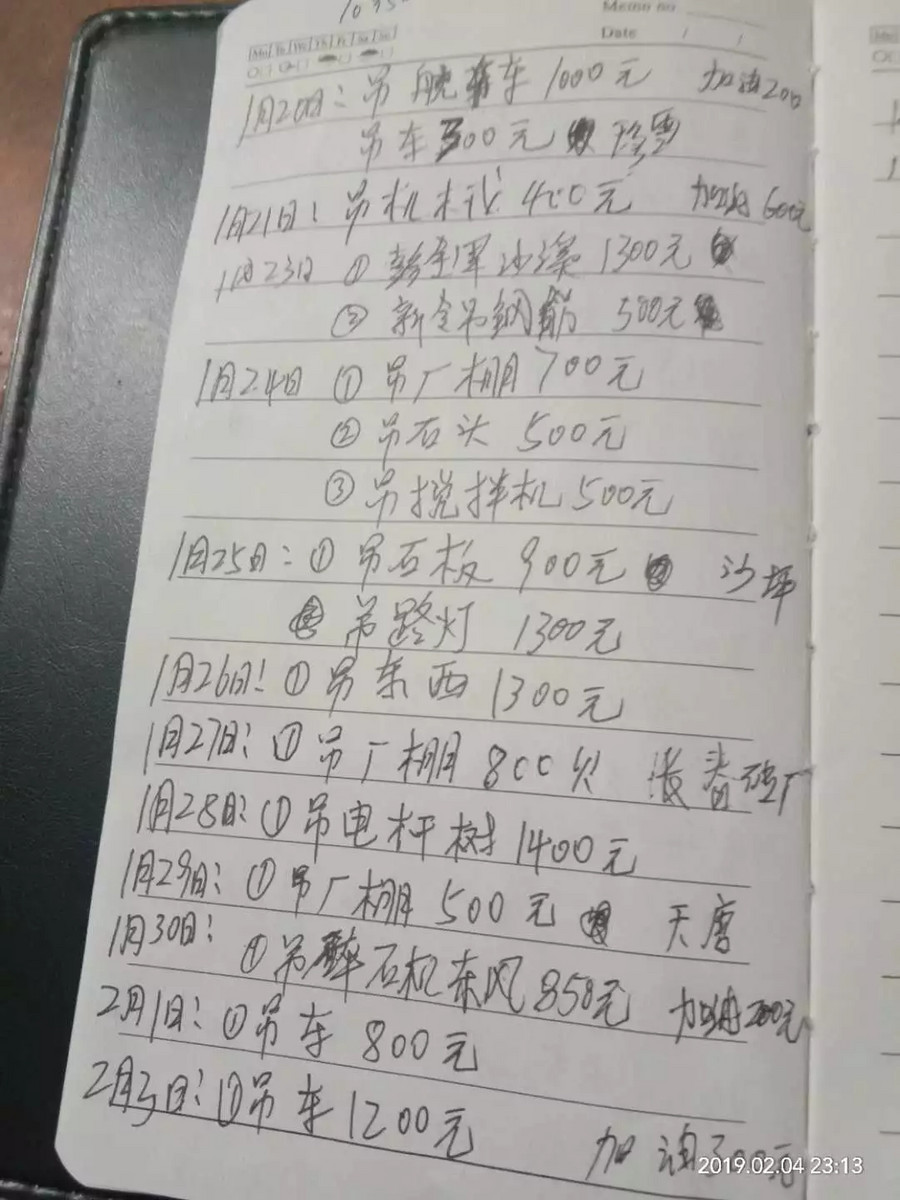 Memo no
Date / /
Mo Tu We Th Fr Sa Su
1月20日: 吊 车 1000元 加油200
吊车 500元
1月21日: 吊机 400元 加油600元
1月23日 ① 沙溪 1300元
② 新 吊钢筋 500元
1月24日 ① 吊厂棚 700元
② 吊石头 500元
③ 吊搅拌机 500元
1月25日: ① 吊石板 900元 沙坪
吊路灯 1300元
1月26日: ① 吊东西 1300元
1月27日: ① 吊厂棚 800 厂
1月28日: ① 吊电杆树 1400元
1月29日: ① 吊厂棚 500元 天唐
1月30日:
① 吊碎石机东风 850元 加油200元
2月1日: ① 吊车 800元
2月3日: ① 吊车 1200元
加油300元
2019.02.04 23:13